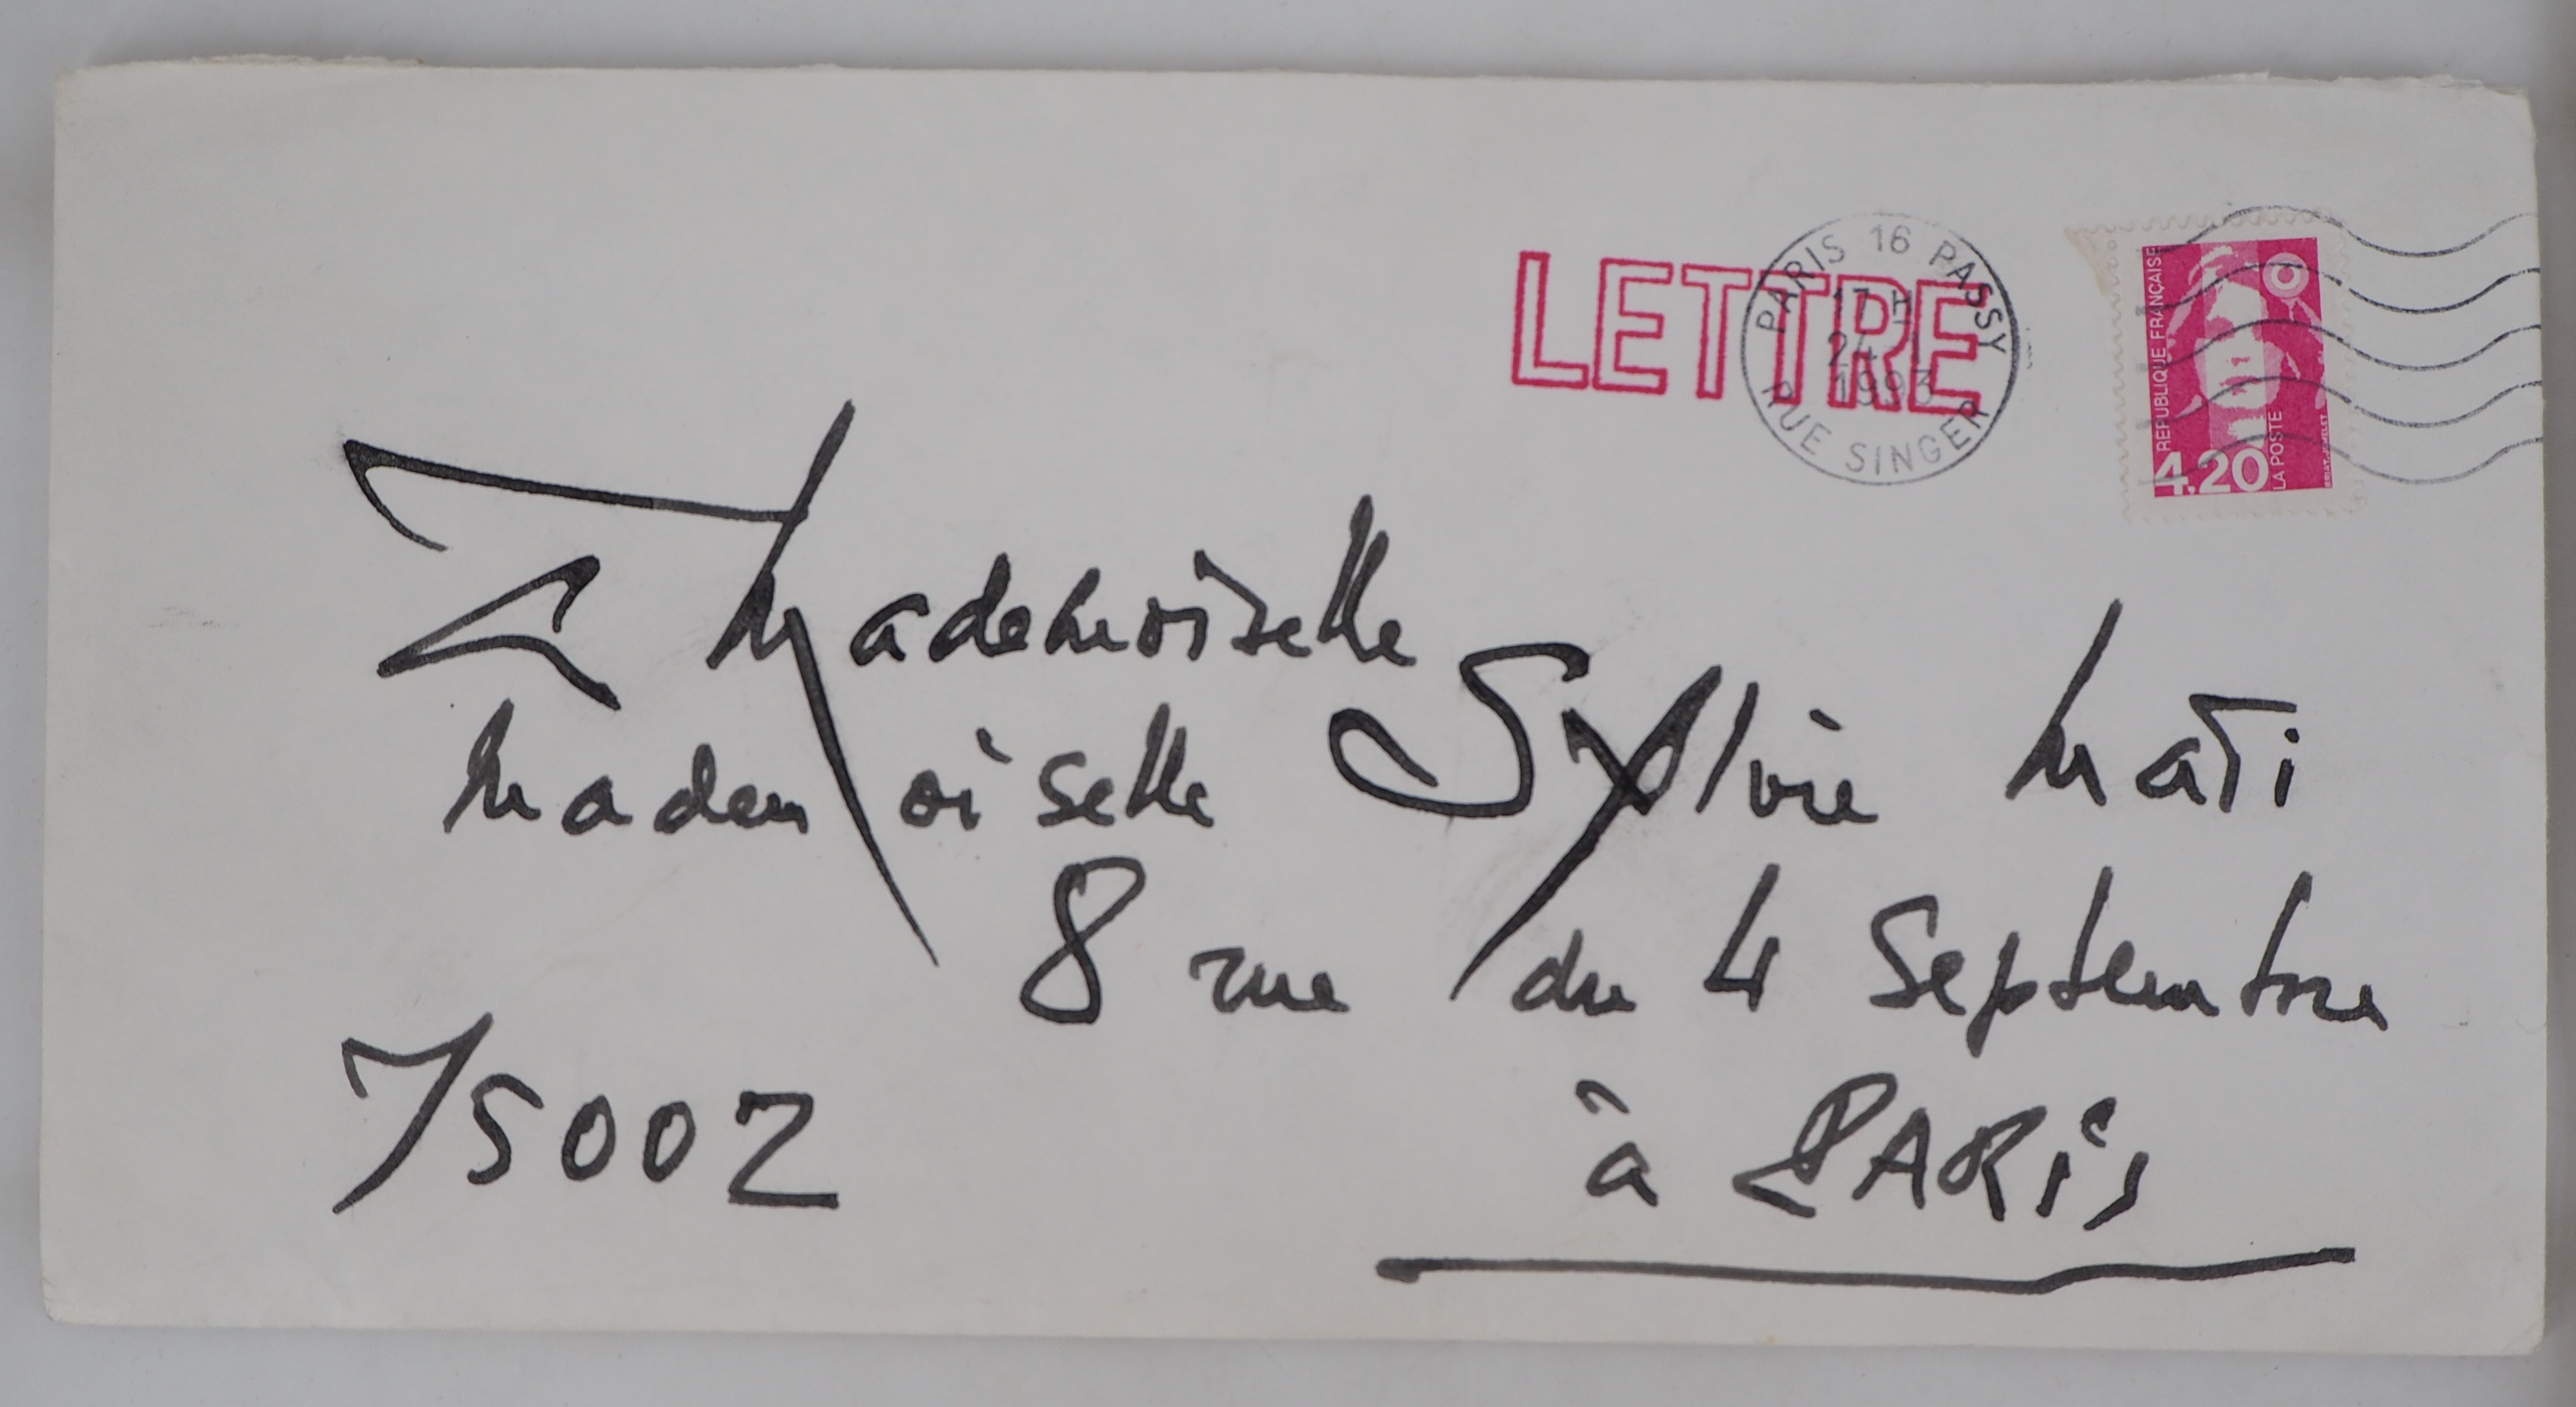 LETTRE
PARIS 16 PASSY
17 H
24 - 1
1993
RUE SINGER
REPUBLIQUE FRANÇAISE
LA POSTE
4,20
Mademoiselle
Mademoiselle Sylvie Mati
8 rue du 4 Septembre
75002 à PARIS